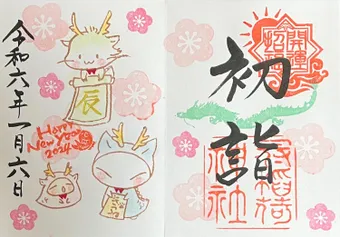 初詣
開運
招福
令和六年一月六日
辰
Happy
New Year
2024
神社